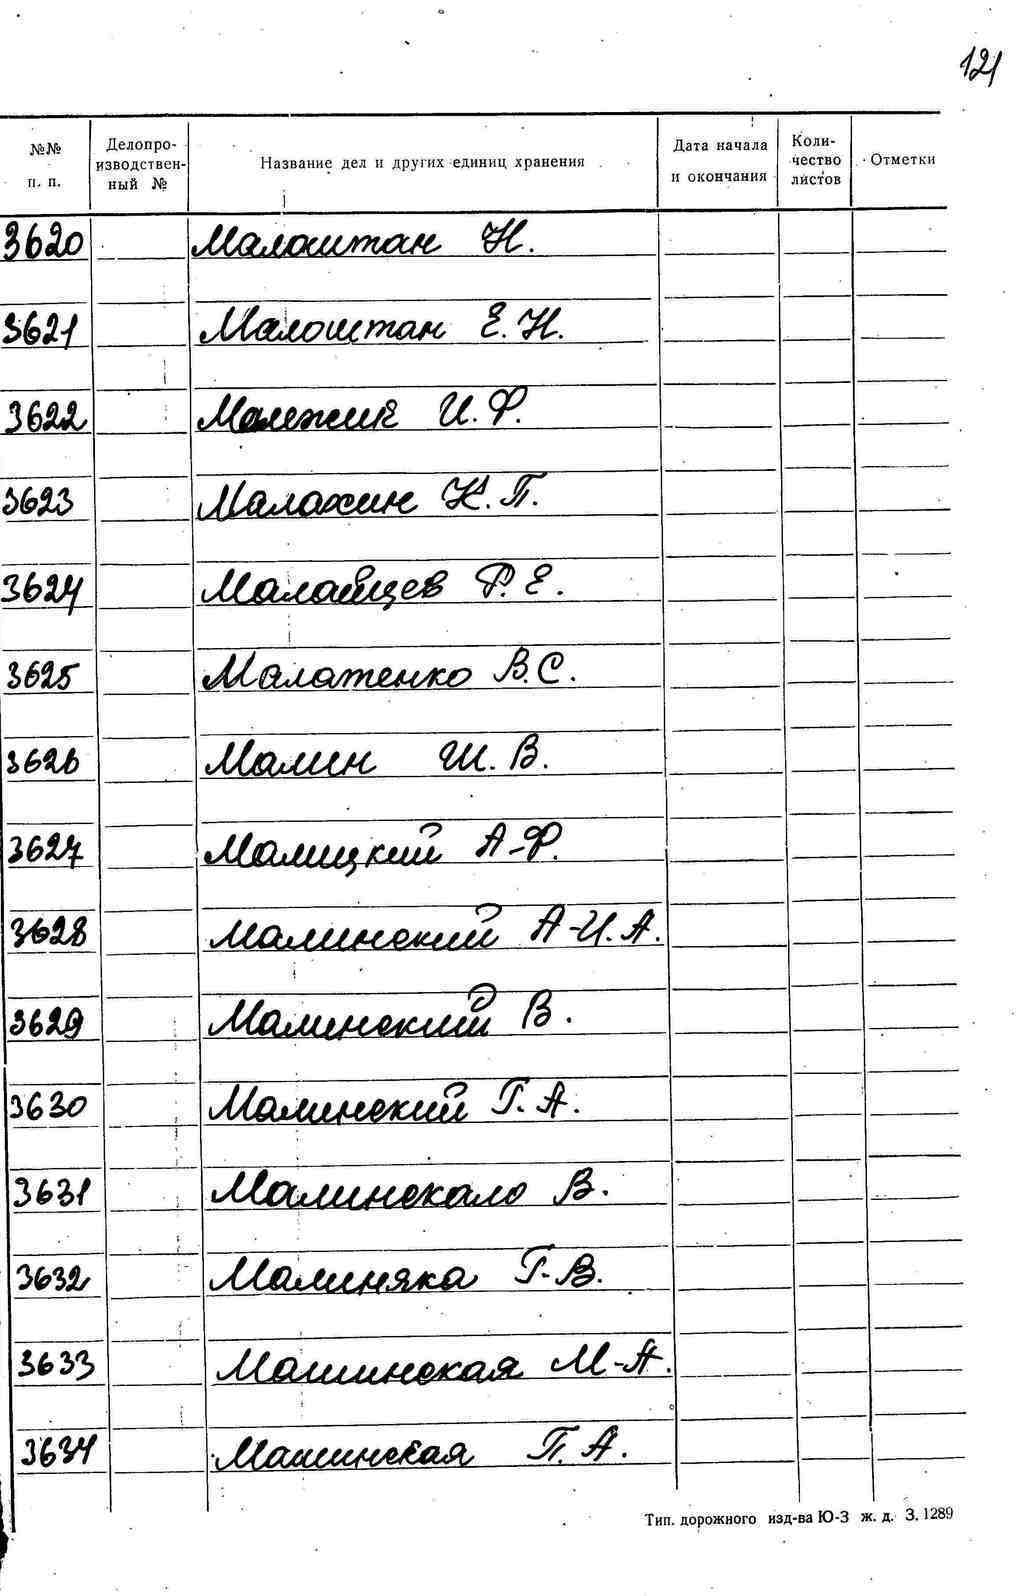 121
№№ п. п.
Делопро-
изводствен-
ный №
Название дел и других единиц хранения
Дата начала
и окончания
Коли-
чество
листов
Отметки
3620 Малоштан Н.
3621 Малоштан Е. Н.
3622 Малежик И. Ф.
3623 Малахин К. П.
3624 Малайцев Р. Е.
3625 Малатенко В. С.
3626 Малин Ш. В.
3627 Малицкий А-Ф.
3628 Малинский А-И. А.
3629 Малинский В.
3630 Малинский Г. А.
3631 Малинскало В.
3632 Малиняка Г-В.
3633 Машинская М-А.
3634 Машинская П. А.
Тип. дорожного изд-ва Ю-З ж. д. З. 1289